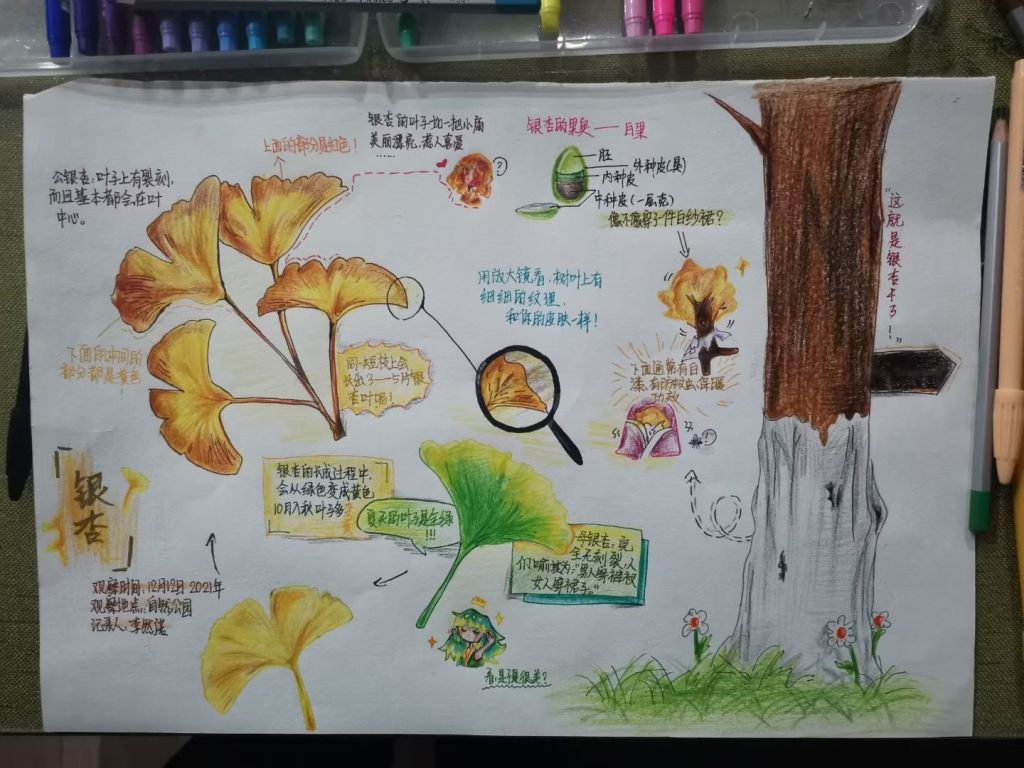 银杏的叶子如一把小扇
美丽漂亮,惹人喜爱
……
上面的部分是红色!
公银杏:叶子上有裂刻,
而且基本都会在叶
中心。
银杏的果臭——白果
胚
外种皮(臭)
内种皮
中种皮(一层壳)
像不像穿了件白纱裙?
"这就是银杏干了!"
用放大镜看,树叶上有
细细的纹理,
和你的皮肤一样!
下面的中间的
部分都是黄色
同一短枝上会
长出3——5片银
杏叶呢!
下面通常有白
漆,有防蚊虫,保暖
功效
「银杏」
银杏的长成过程中,
会从绿色变成黄色
10月入秋叶子多
夏天的叶子是全绿
!!!
母银杏:完
全无刻裂,人
们喻其为:"男人穿裤衩
女人穿裙子。"
观察时间:12月12日 2021年
观察地点:自然公园
记录人:李然
看,是不是很美?